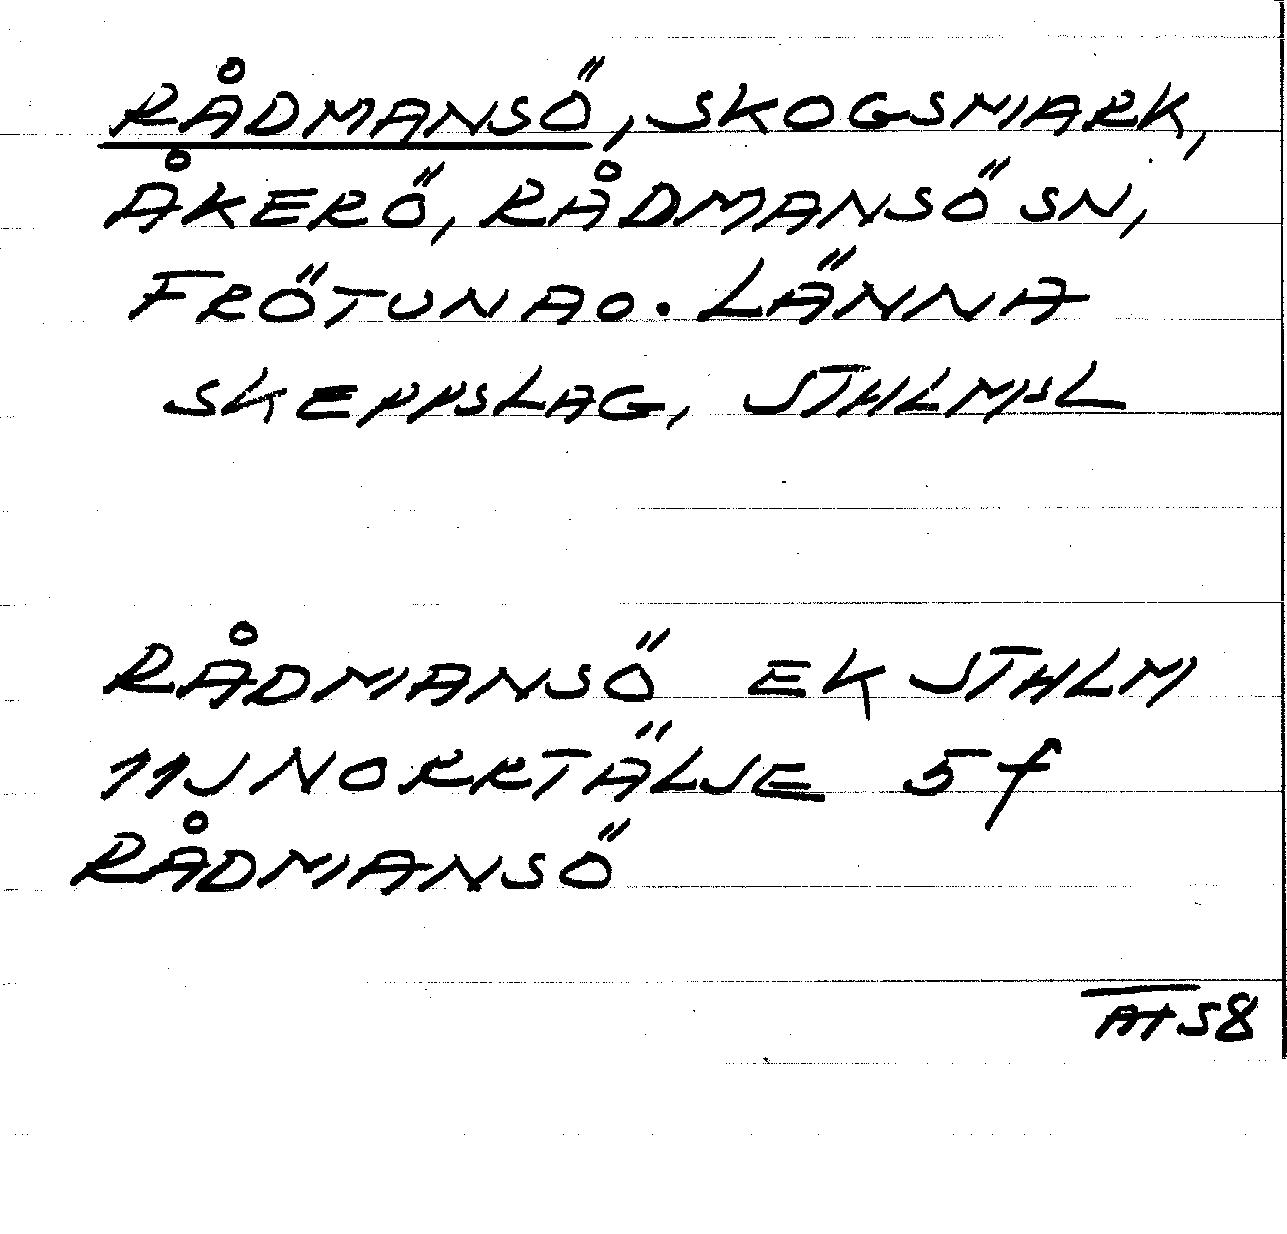 RÅDMANSÖ, SKOGSMARK,
ÅKERÖ, RÅDMANSÖ SN,
FRÖTUNA O. LÄNNA
SKEPPSLAG, STHLMSL
RÅDMANSÖ EK STHLM
11J NORRTÄLJE 5f
RÅDMANSÖ
AT58